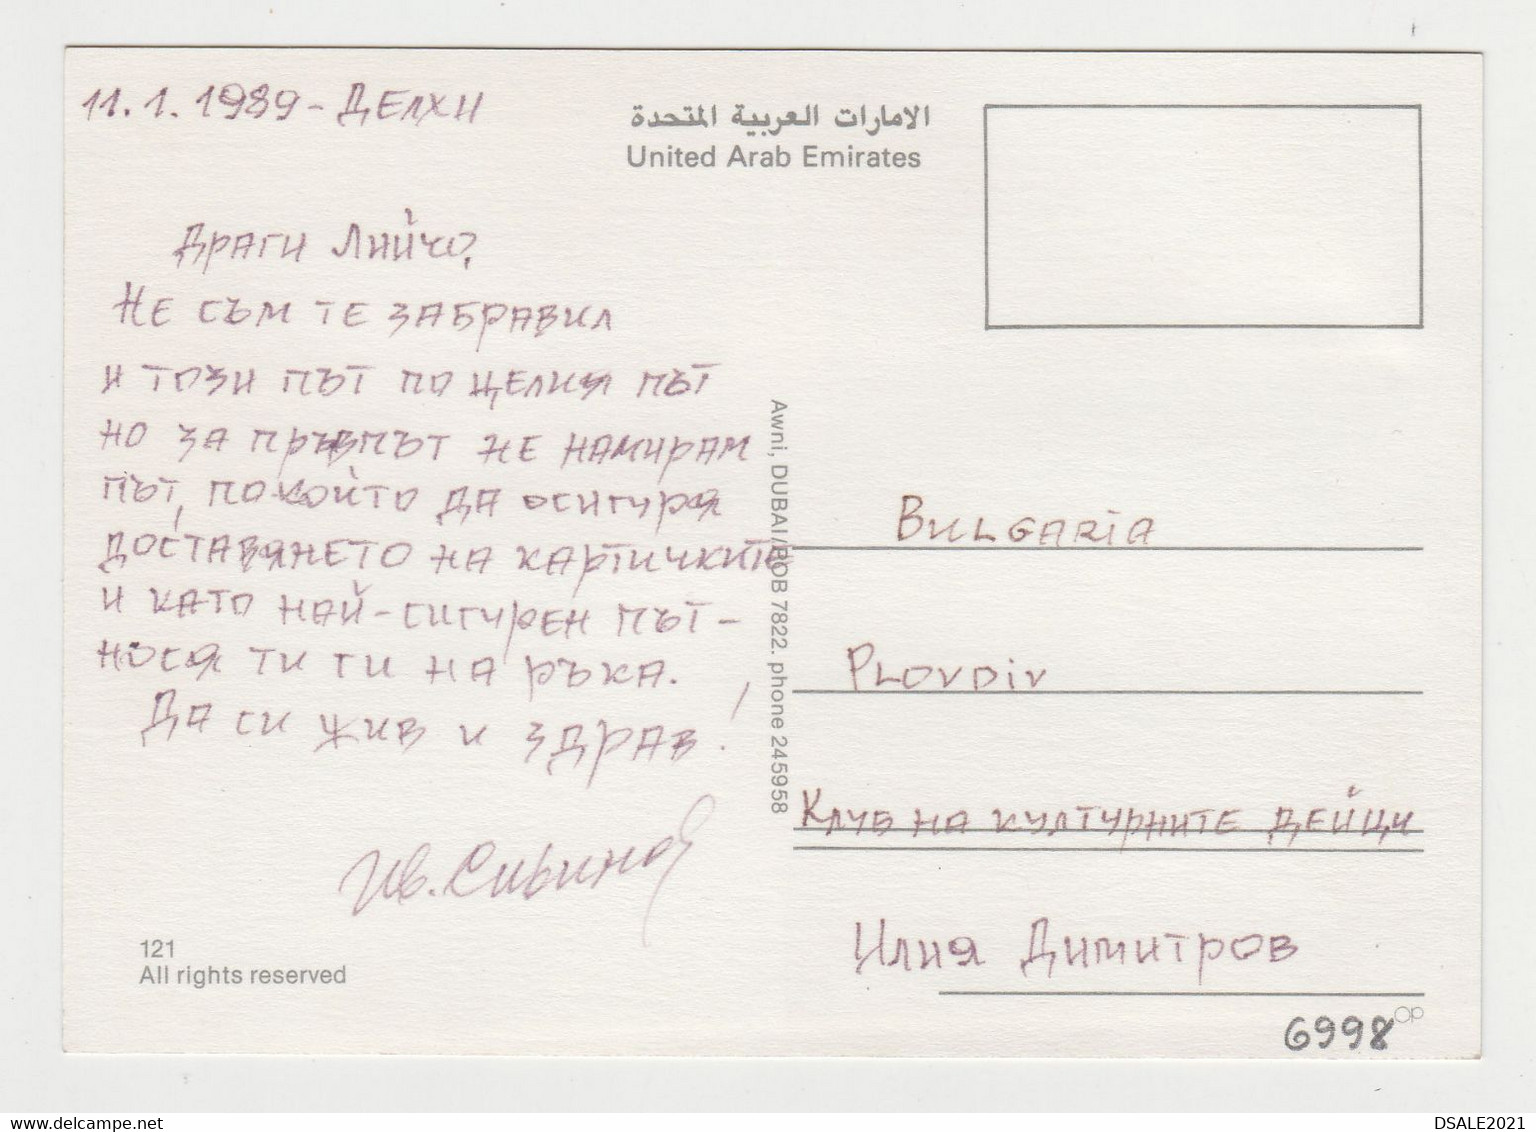 11.1.1989 - ДЕЛХИ
الامارات العربية المتحدة
United Arab Emirates
ДРАГИ ЛИЙЧО,
НЕ СЪМ ТЕ ЗАБРАВИЛ
И ТОЗИ ПЪТ ПО ЦЕЛИЯ ПЪТ
НО ЗА ПРЪВПЪТ НЕ НАМИРАМ
ПЪТ, ПО КОЙТО ДА ОСИГУРЯ
ДОСТАВЯНЕТО НА КАРТИЧКИТЕ
И КАТО НАЙ-СИГУРЕН ПЪТ -
НОСЯ ТИ ГИ НА РЪКА.
ДА СИ ЖИВ И ЗДРАВ!
Ив.
121
All rights reserved
Awni, DUBAI/POB 7822. phone 245958
BULGARIA
PLOVDIV
КЛУБ НА КУЛТУРНИТЕ ДЕЙЦИ
ИЛИЯ ДИМИТРОВ
Op
6998
www.delcampe.net
DSALE2021